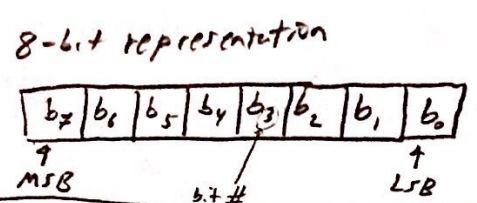 8-bit representation
b₇ b₆ b₅ b₄ b₃ b₂ b₁ b₀
MSB bit # LSB